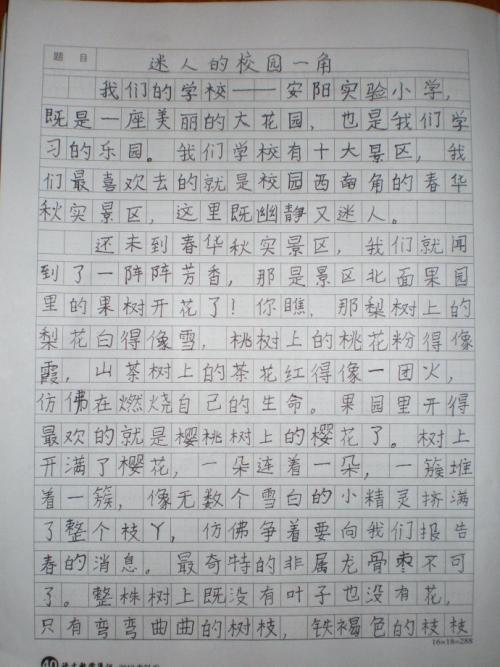 题 目
迷人的校园一角
我们的学校——安阳实验小学，
既是一座美丽的大花园，也是我们学
习的乐园。我们学校有十大景区，我
们最喜欢去的就是校园西南角的春华
秋实景区，这里既幽静又迷人。
还未到春华秋实景区，我们就闻
到了一阵阵芳香，那是景区北面果园
里的果树开花了！你瞧，那梨树上的
梨花白得像雪，桃树上的桃花粉得像
霞，山茶树上的茶花红得像一团火，
仿佛在燃烧自己的生命。果园里开得
最欢的就是樱桃树上的樱花了。树上
开满了樱花，一朵连着一朵，一簇堆
着一簇，像无数个雪白的小精灵挤满
了整个枝丫，仿佛争着要向我们报告
春的消息。最奇特的非属龙骨枣不可
了。整株树上既没有叶子也没有花，
只有弯弯曲曲的树枝，铁褐色的枝枝
16×18=288
40